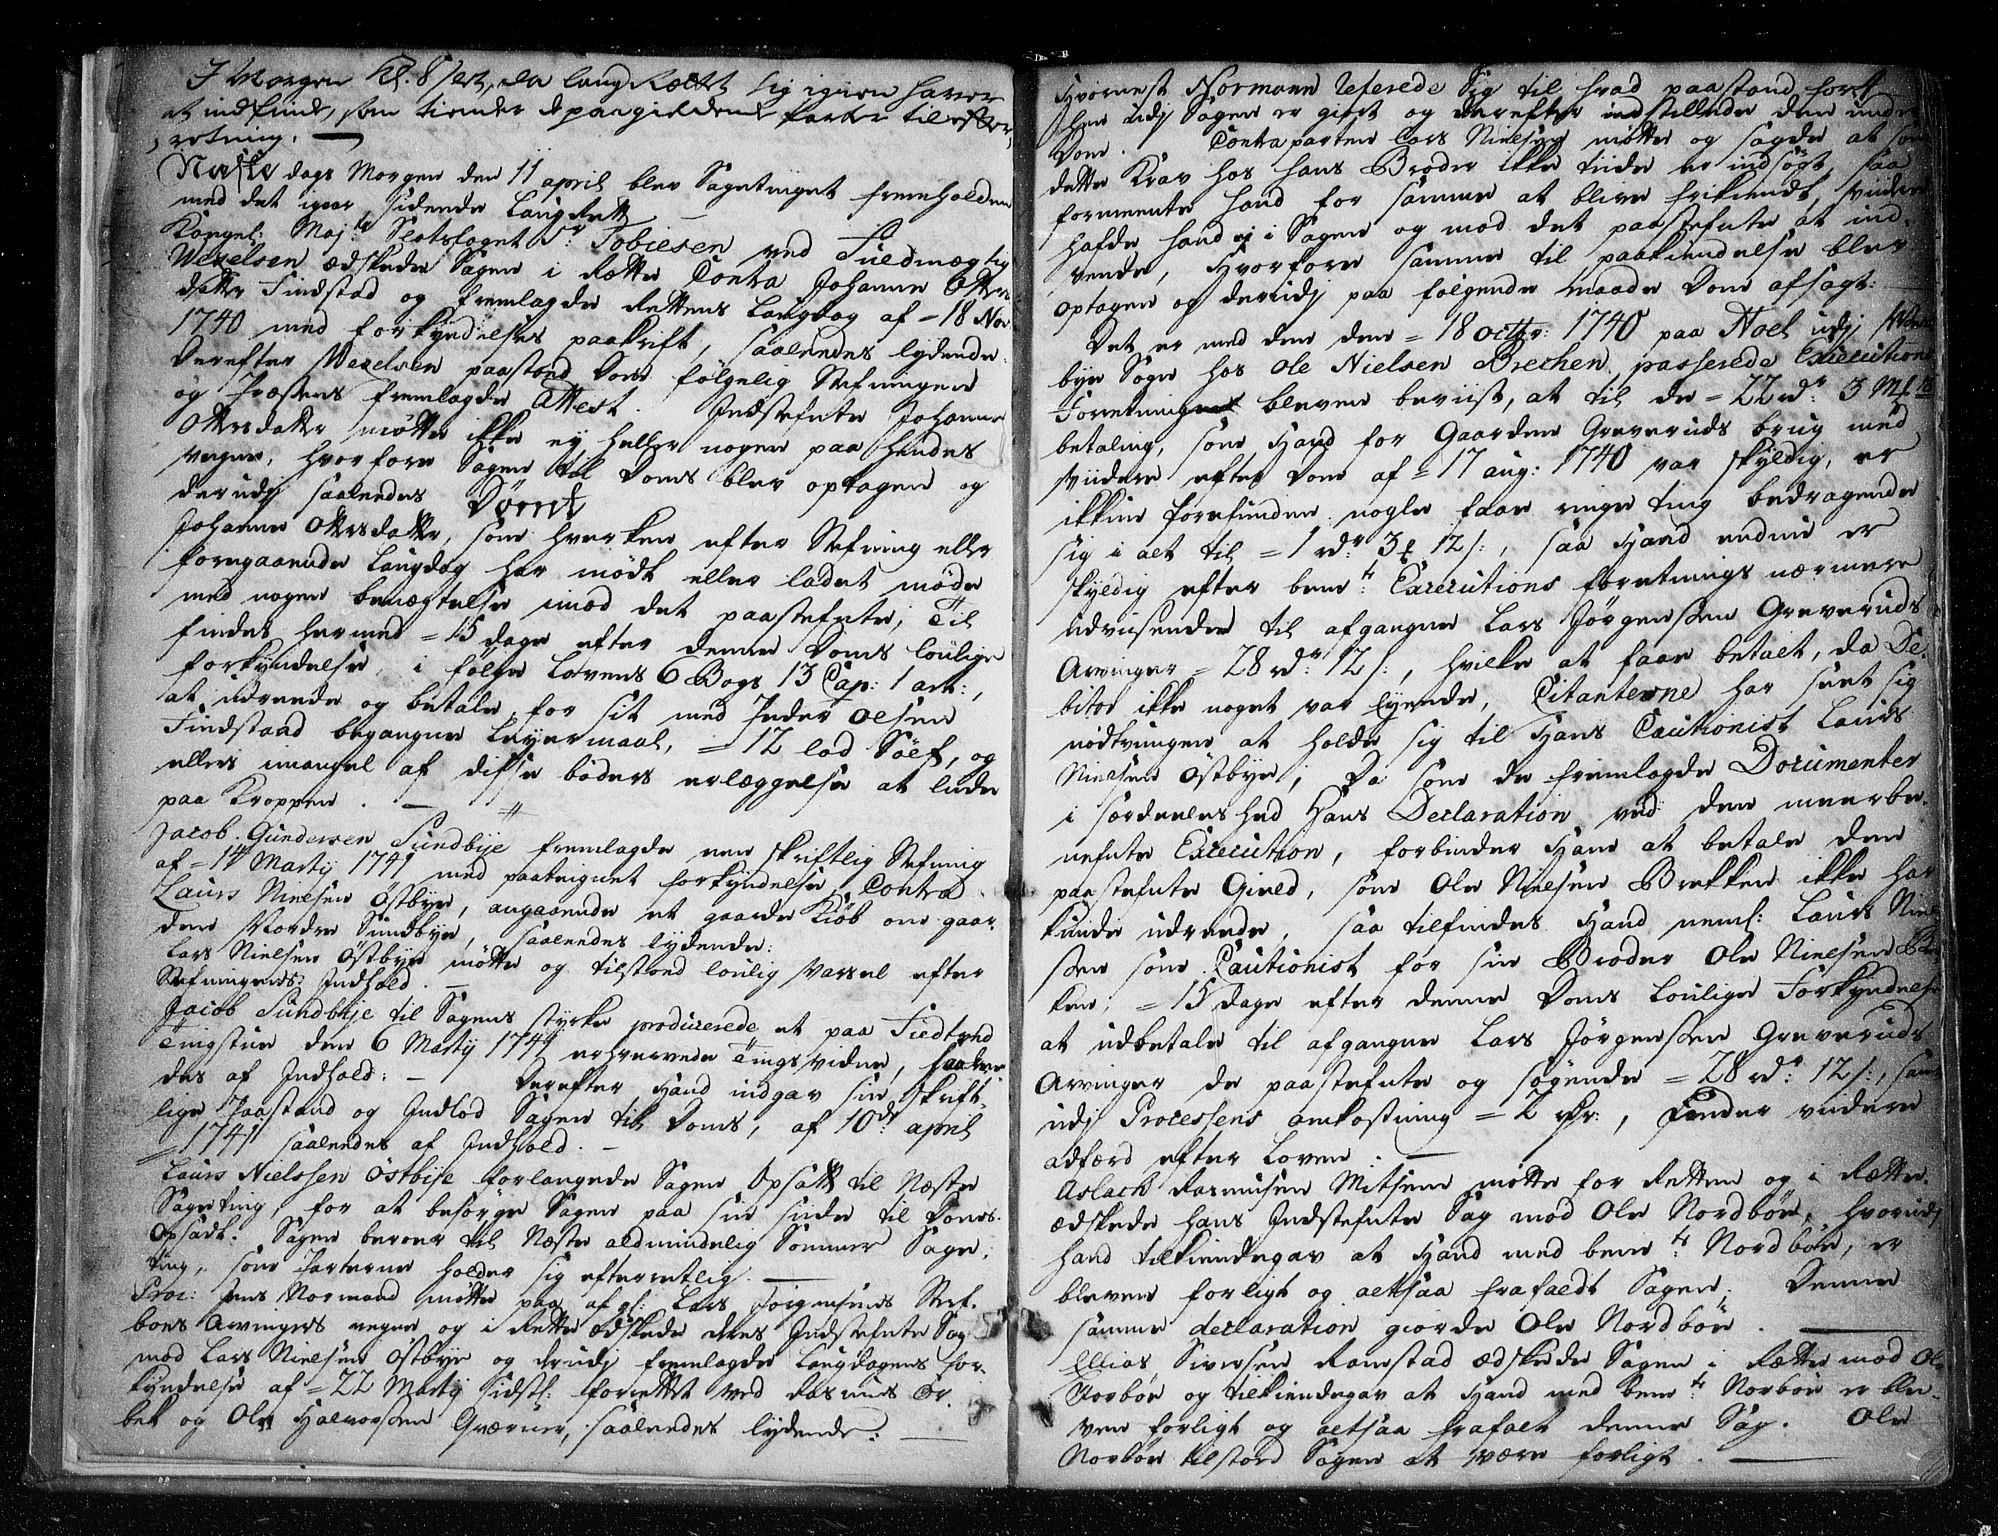 I Morgen Kl. 8 slet, da laug Rettet sig igien haver
at indfinde, som tiender de paagieldende parter til efter-
retning.
Næste dags Morgen den 11 april blev Sagetinget fremholden
med det igaar sidende Laugrett
Kongel: Maj:ts Slotsfoget Sr. Tobiesen ved Fuldmægtig
Wexelsen æskede Sagen i Rette Contra Johanne Otters
datter Findstad og fremlagde Rettens Laugdag af 18 Nov
1740 med forkyndelses paaskrift, saaledes lydende.
Derefter Wexelsen paastod Dom følgelig Stefningen
og Præstens fremlagde Attest. Indstefnte Johanne
Ottersdatter møtte ikke ey heller nogen paa hendes
vegne, hvorfore Sagen til Doms blev optagen og
derudj saaledes Dømt
Johanne Ottersdatter, som hverken efter Stefning eller
foregaaende Laugdag har mødt eller ladet møde
med nogen benægtelse imod det paastefnte, Til
findes hermed = 15 dage efter denne Doms lovlige
forkyndelse, i følge Lovens 6 Bogs 13 Cap: 1 art:,
at udrede og betale for sit med Peder Olsen
Findstaad begangne Leyermaal, = 12 lod Sølf, og
ellers i mangel af disse bøders erlæggelse at lide
paa Kroppen. —
Jacob Gundersen Sundbye fremlagde een skriftlig Stefning
af = 14 Martij 1741 med paategnet forkyndelse, Contra
Laurs Nielsen Østbye, angaaende et gaarde Kiøb om gaar-
den Nordre Sundbye, saaledes lydende:
Lars Nielsen Østbye møtte og tilstod lovlig Varsel efter
Stefningens Indhold. —
Jacob Sundbye til Sagens styrke producerede et paa
Tingstue den 6 Martij 1741 erhvervede Tingsvidne, saale-
des af Indhold: — Derefter Hand indgav sin skrift-
lige Paastand og Indlod Sagen til Doms, af 10de april
= 1741 saaledes af Indhold. —
Laurs Nielssen Østbye forlangede Sagen Opsatt til Næste
Sageting, for at besørge Sagen paa sin side til Doms.
Opsadt. Sagen beroer til Næste almindelig Sommer Sage-
ting, som Parterne holder sig efterretlig. —
Proc: Jens Normand møtte paa afgl: Lars Jørgensens Sterf-
boes Arvingers vegne og i Rette æskede deres Indstefnte Sag
mod Lars Nielsen Østbye og derudj fremlagde Laugdagens for-
kyndelse af = 22 Martij sidstl: forrettet ved Rasmus
og Ole Halvorssen Qværner, saaledes lydende: —
Hvornest Normann refererede Sig til hvad paastand
udj Sagen er giort og derefter indstillede den under
Dom. Contraparten Lars Nielsen møtte og sagde at som
dette Krav hos hans Broder ikke tide er indsøgt, saa
formeente hand for samme at blive frikiendt, viidere
hafde hand ej i Sagen og mod det paastefnte at ind-
vende, Hvorfore samme til paakiendelse blev
optagen og derudj paa følgende maade Dom afsagt:
Det er med den den = 18 octbr: 1740 paa Noel udj
bye Sogn hos Ole Nielsen Brechen, passerede Executions
Forretning bleven beviist, at til de = 22 rdr: 3 Mk
betaling, som Hand for Gaarden Greveruds brug med
viidere efter Dom af = 17 aug: 1740 var skyldig, er
ikkun forefunden nogle faae ringe ting bedragende
sig i alt til = 1 rdr: 3 12 s:, saa Hand endnu er
skyldig efter bemte: Executions foretnings nærmere
udviisende til afgangne Lars Jørgenssen Greveruds
Arvinger = 28 rdr: 12 s:, hvilke at faae betalt, da De-
bitor ikke noget var Eyende, Citanterne har seet sig
nødtvungen at holde sig til Hans Cautionist Laurs
Nielsen Østbye; Da som de fremlagde Documenter
i særdeeleshed Hans Declaration ved den meerbe-
nefnte Execution, forbinder Ham at betale den
paastefnte Gield, som Ole Nielsen Brekken ikke har
kunde udrede, saa tilfindes Hand neml: Laurs Niel-
ssen som Cautionist for sin Broder Ole Nielsen Bre-
ken, = 15 dage efter denne Doms Lovlige Forkyndelse
at udbetale til afgangne Lars Jørgenssen Greveruds
Arvinger de paastefnte og søgende = 28 rdr: 12 s:, samt
udj Processens omkostning = 2 rdr:, under viidere
adfærd efter Loven. —
Aslach Rasmusen Mitsem møtte for Retten og i Rette
æskede hans Indstefnte Sag mod Ole Nordbøe, hvorudj
hand tilkiendegav at Hand med bemte: Nordbøe, er
bleven forligt og altsaa frafaldt Sagen. Denne
samme declaration giorde Ole Nordbøe. —
Ellias Siversen Ramstad æskede Sagen i Rette mod Ole
Norbøe og tilkiendegav at Hand med bemte: Norbøe er ble-
ven forligt og altsaa frafalt denne Sag. Ole
Norbøe tilstod Sagen at være forligt. —